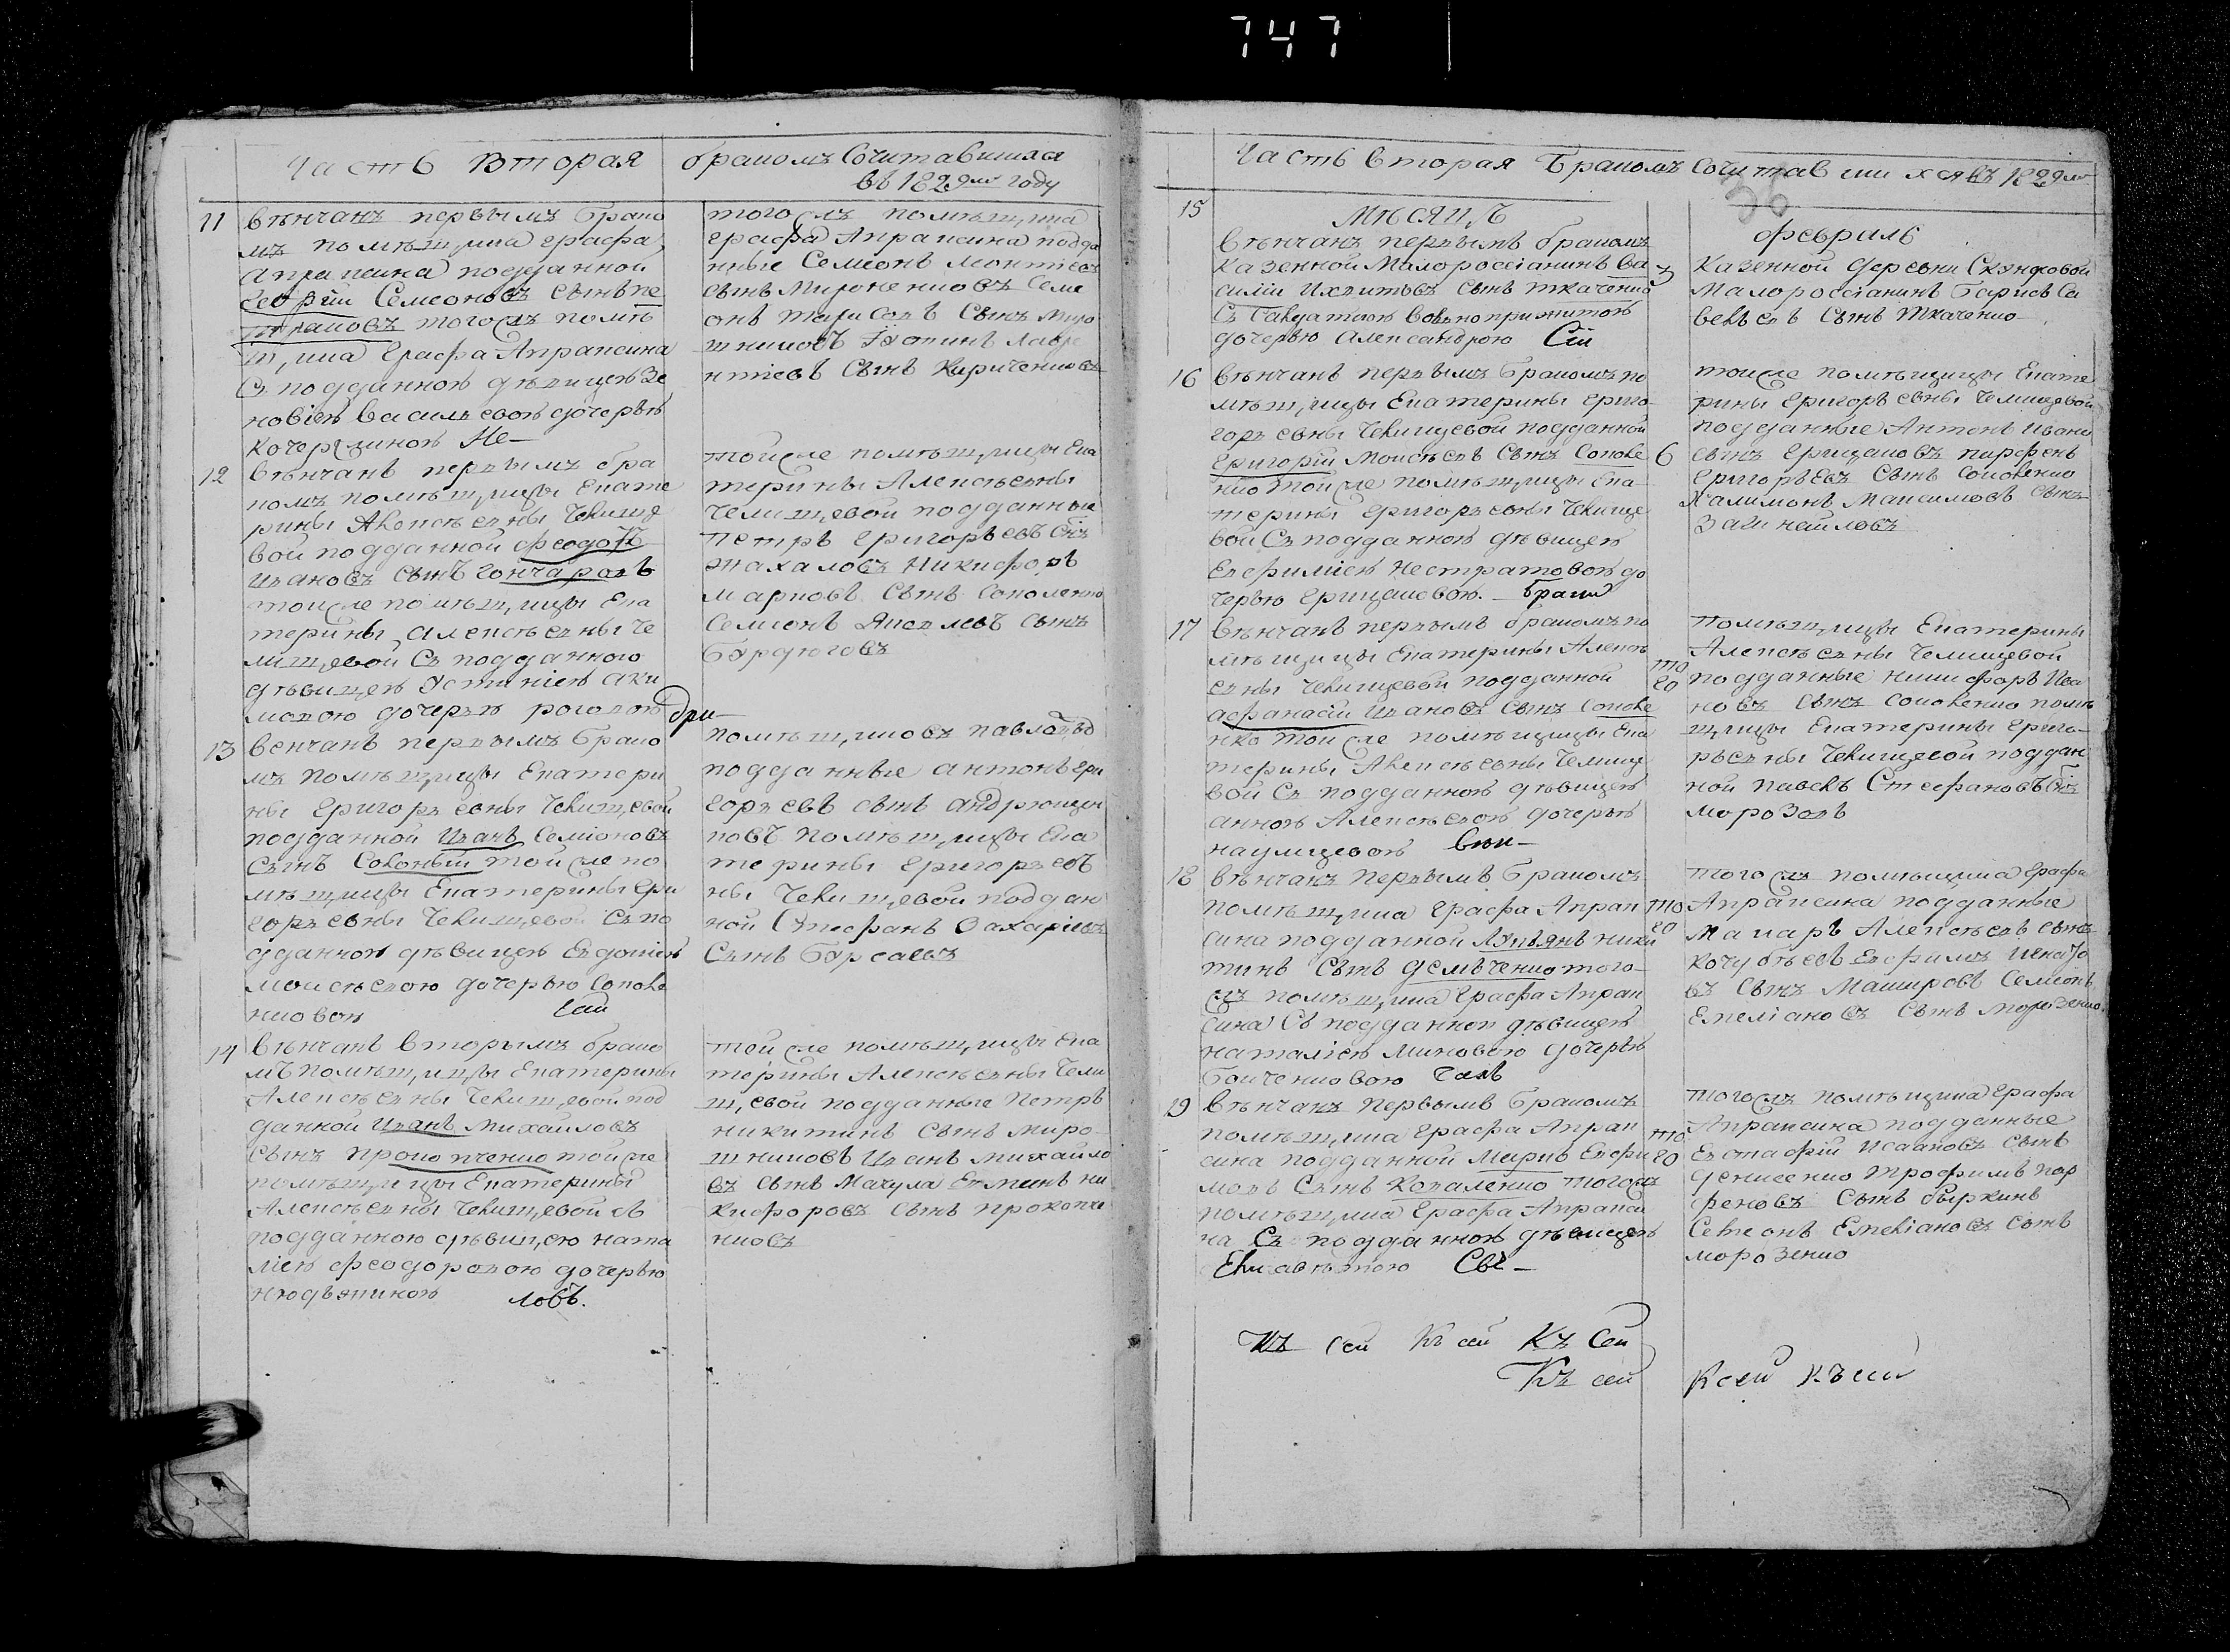 747
Часть Вторая
бракомъ Сочитавшихся
въ 1829мъ году
11
вѣнчанъ первымъ брако
мъ помѣщика Графа
Апраксина подданной
Георгій Семеновъ сынъ пе
того жъ помѣ
щика Графа Апраксина
съ подданною дѣвицею Зе
новіею Васильевою дочерью
Не-
того жъ помѣщика
Графа Апраксина подда
нные Семіонъ
сынъ Мироненковъ Семе
онъ Сынъ Миро
шниковъ Лавре
нтіевъ Сынъ Кириченковъ
12
Вѣнчанъ первымъ бра
комъ помѣщицы Екате
рины Алексѣевны Челище
вой подданной Феодоръ
Ивановъ сынъ Гончаровъ
тойже помѣщицы Ека
терины Алексѣевны Че
лищевой Съ подданною
дѣвицею Устиніею Аки
мовою дочерью
дри-
тойже помѣщицы Ека
терины Алексѣевны
Челищевой подданныи
Петръ Григорьевъ снъ
Никифоръ
Марковъ Сынъ Соколенко
Семіонъ Яковлевъ сынъ
Бурдюговъ
13
Венчанъ первымъ брако
мъ помѣщицы Екатери
ны Григорьевны Челищевой
подданной Иванъ Семіоновъ
Сынъ тойже по
мѣщицы Екатерины Гри
горьевны Челищевой Съ по
дданною дѣвицею Евдокіею
Моисѣевою дочерью Соколе
нковою
сей
помѣщиковъ
подданные Антонъ Гри
горьевъ сынъ Андрющен
ковъ помѣщицы Ека
терины Григорьев
ны Челищевой поддан
ной Стефанъ Захаріевъ
Сынъ
14
Вѣнчанъ Вторымъ брако
мъ помѣщицы Екатерины
Алексѣевны Челищевой под
данной Иванъ Михайловъ
Сынъ Прокопченко тойже
помѣщицы Екатерины
Алексѣевны Челищевой съ
подданною дѣвицею Ната
ліею Феодоровою дочерью
ловъ.
тойже помѣщицы Ека
терины Алексѣевны Чели
щевой подданные Петръ
Никитинъ Сынъ Миро
шниковъ Иванъ Михайло
въ сынъ Мачула Ни
кифоровъ Сынъ Прокопче
нковъ
Часть Вторая Бракомъ Сочитавшихся въ 1829мъ
15
Мѣсяцъ
Вѣнчанъ первымъ бракомъ
Казенной Малороссіанинъ Ва
силій сынъ Ткаченко
дочерью Александрою Сіи
3
февраль
Казенной деревни
Малороссіанинъ Са
вельевъ сынъ Ткаченко
16
Вѣнчанъ первымъ бракомъ по
мѣщицы Екатерины Григо
горьевны Челищевой подданной
Григорій Моисѣевъ Сынъ Соколе
нко тойже помѣщицы Ека-
терины Григорьевны Челище
вой Съ подданною дѣвицею
Евфиміею до
черью Грицаковою. браки
6
тойже помѣщицы Екате
рины Григорьевны Челищевой
подданные Антонъ Ивано
сынъ Грицаковъ Парфенъ
Григорьевъ Сынъ Соколенко
Халимонъ Максимовъ Сынъ
17
Вѣнчанъ первымъ бракомъ по
мѣщицы Екатерины Алексѣ
евны Челищевой подданной
Афанасій Ивановъ Сынъ Соколе
нко тойже помѣщицы Ека
терины Алексѣевны Челище
вой Съ подданною дѣвицею
анною Алексѣевою дочерью
вѣн-
то
го
Помѣщицы Екатерины
Алексѣевны Челищевой
подданные Никифоръ Ива
новъ Сынъ Соколенко помѣ
щицы Екатерины Григо-
рьевны Челищевой поддан
ной Павелъ Стефановъ снъ
Морозовъ
18
Вѣнчанъ Первымъ Бракомъ
помѣщика Графа Апрак
сина подданной Лукьянъ Ники
тинъ Сынъ Демьченко того-
жъ помѣщика Графа Апрак
сина Съ подданною дѣвицею
Наталіею Миновою дочерью
Бойченковою
то
го
того жъ помѣщика Графа
Апраксина подданные
Макаръ Алексѣевъ сынъ
Кочубѣевъ Евфимъ
въ Сынъ Машировъ Семіонъ
Емеліановъ Сынъ Морозенко
19
Вѣнчанъ Первымъ Бракомъ
помѣщика Графа Апрак
сина подданной Евфи
мовъ Сынъ Коваленко тогожъ
помѣщика Графа Апракси
на Съ подданною дѣвицею
Елисаветою Свѣ-
то
го
того жъ помѣщика Графа
Апраксина подданные
Евстафій Исааковъ Сынъ
Денисенко Трофимъ Пар
феновъ Сынъ
Семіонъ Емеліановъ сынъ
Морозенко
Къ сей Къ сей Къ Сей
Къ сей
К сей Къ сей